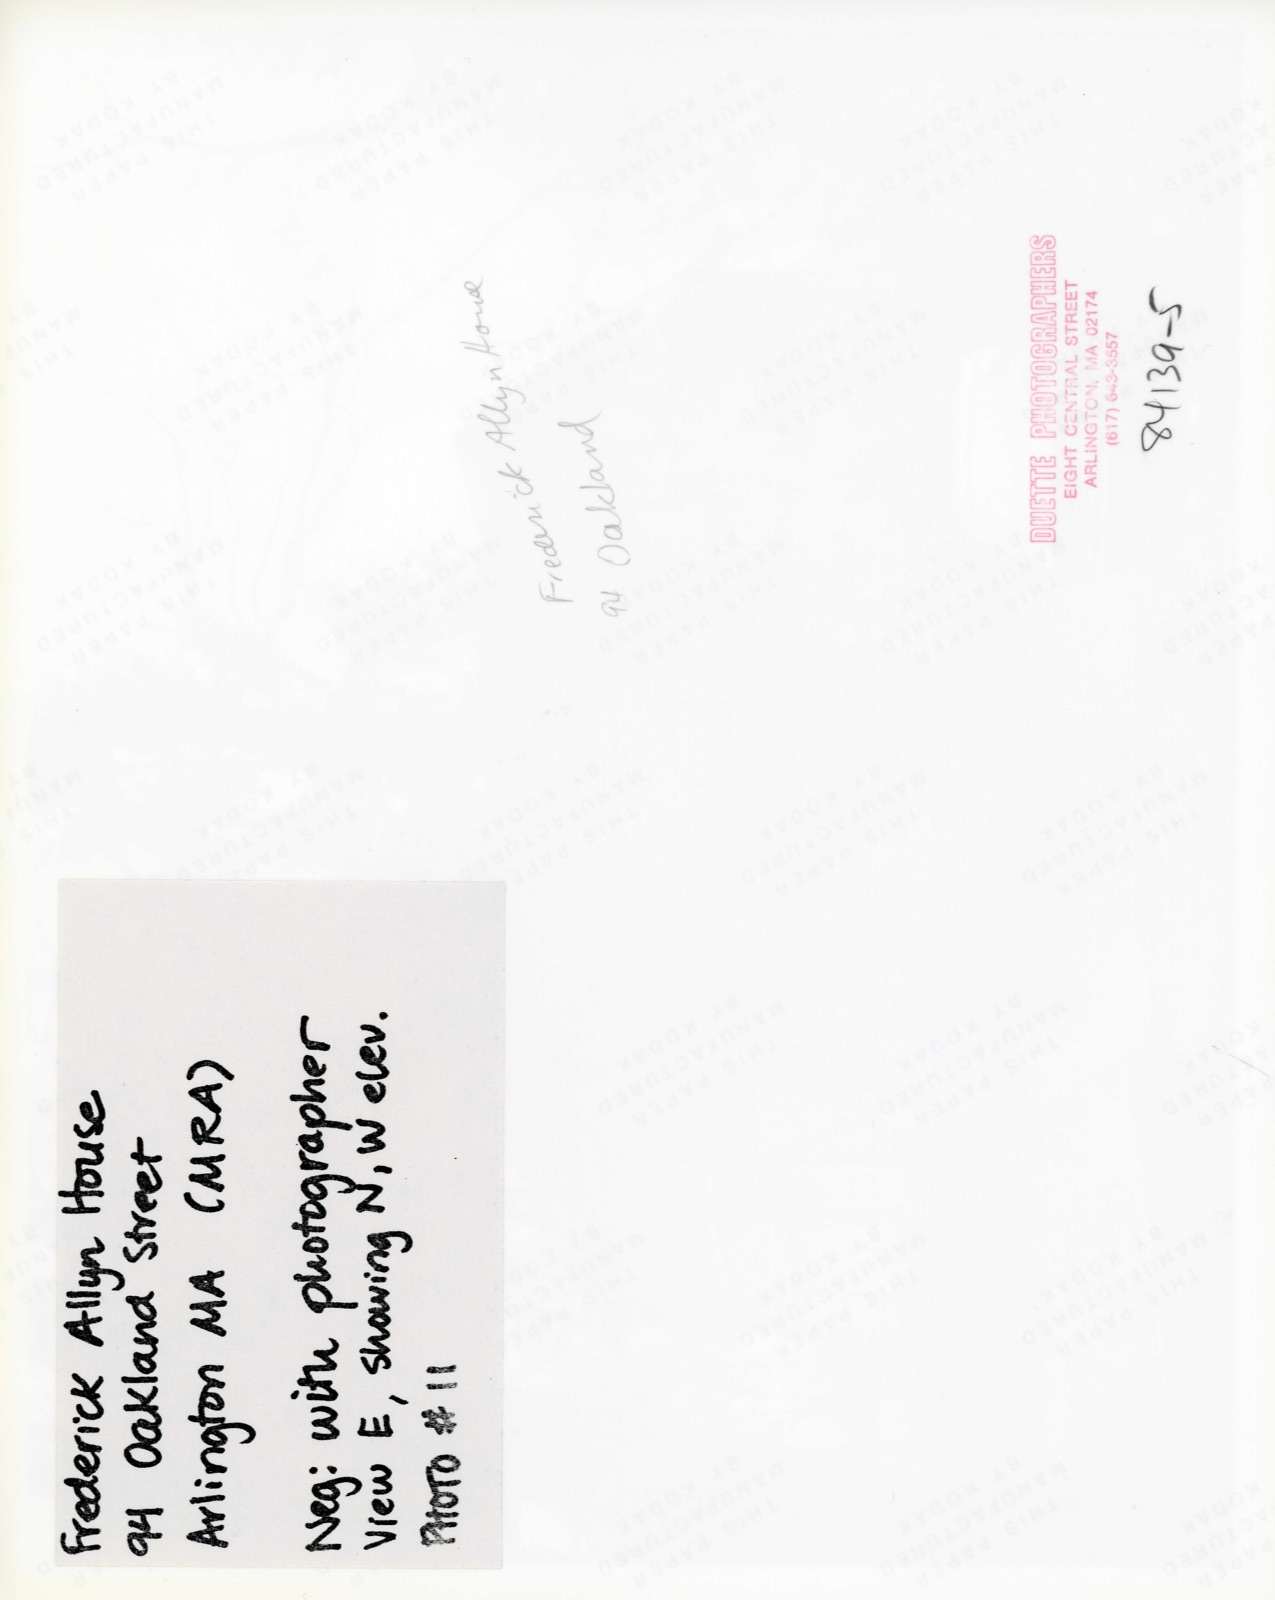 Frederick Allyn House
94 Oakland Street
Arlington MA (MRA)
Neg: with photographer
View E, showing N, W elev.
PHOTO # 11
Frederick Allyn House
94 Oakland
DUETTE PHOTOGRAPHERS
EIGHT CENTRAL STREET
ARLINGTON, MA 02174
(617) 643-3557
84139-5
THIS PAPER
MANUFACTURED
BY KODAK